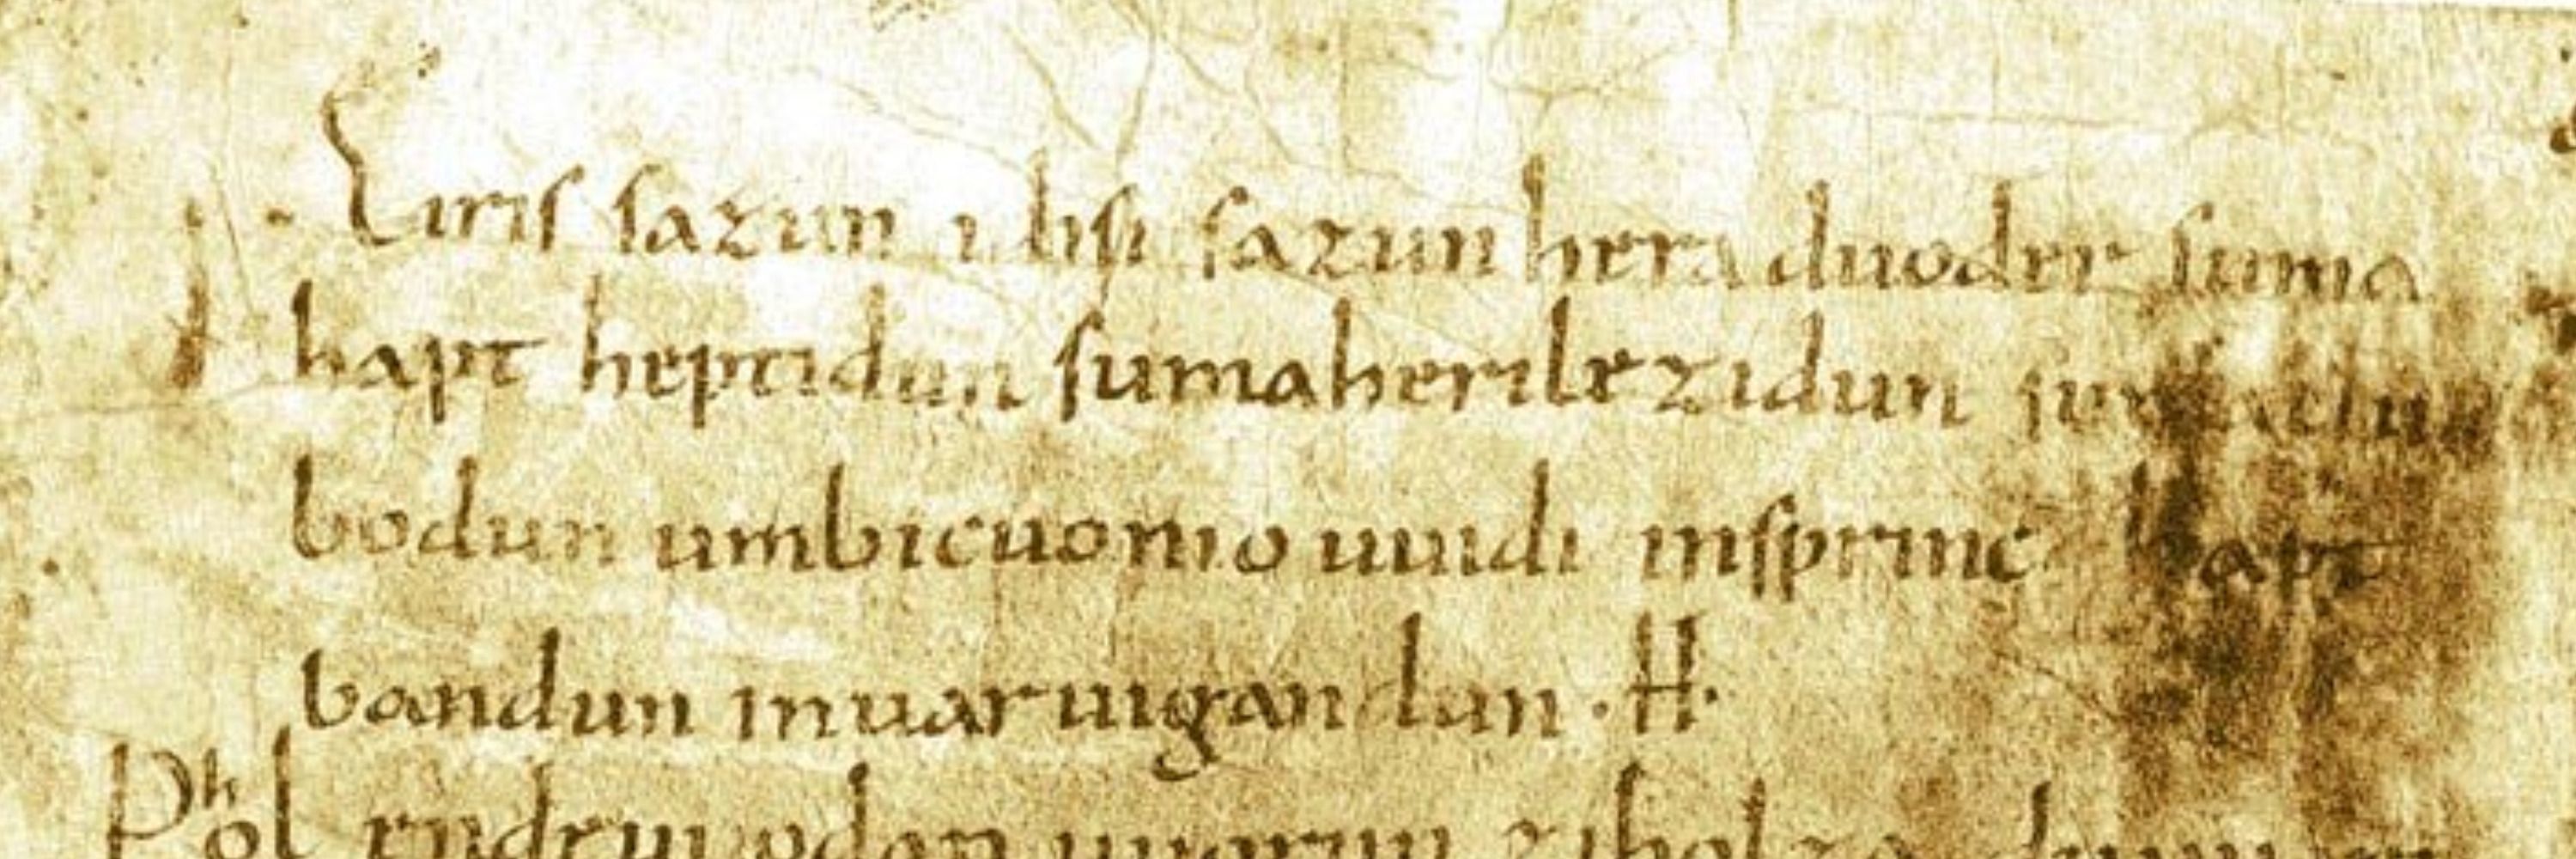 Eiris sazun idisi sazun hera duoder suma
hapt heptidun sumaherilezidun sumaclu
bodun umbicuonio uuidi insprinc hapt
bandun inuaruigandun · H ·
Phol endeuuodan uuorun ziholza